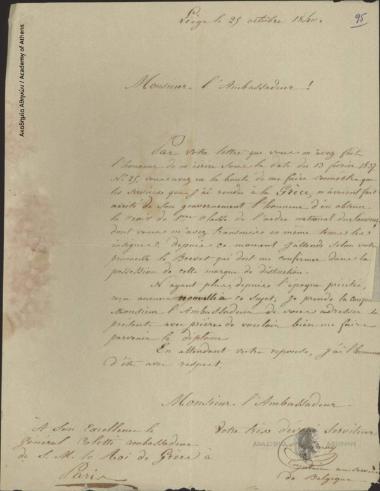 Ακαδημία Αθηνών / Academy of Athens
95
Liège le 25 octobre
Monsieur l'Ambassadeur !
Par votre lettre que vous m'avez fait
l'honneur de m'écrire sous la date du 13 février 1837
N° 25, vous avez eu la bonté de me faire connaître que
les services que j'ai rendu à la Grèce, m'avaient fait
de son gouvernement l'honneur d'en obtenir
la croix de classe de l'ordre national du Sauveur
dont vous m'avez transmis en même temps les
insignes; depuis ce moment j'attends selon votre
promesse le Brevet qui doit me confirmer dans la
possession de cette marque de distinction.
N'ayant plus depuis l'époque
aucune nouvelle à ce sujet, je prends la
Monsieur l'Ambassadeur de vous adresser la
présente avec prière de vouloir bien me faire
parvenir le diplome
En attendant votre reponse, j'ai l'honneur
d'être avec respect
Monsieur l'Ambassadeur
Votre très Serviteur
A Son Excellence le
General Coletti ambassadeur
de S. M. le Roi de Grèce à
Paris
au service
de Belgique